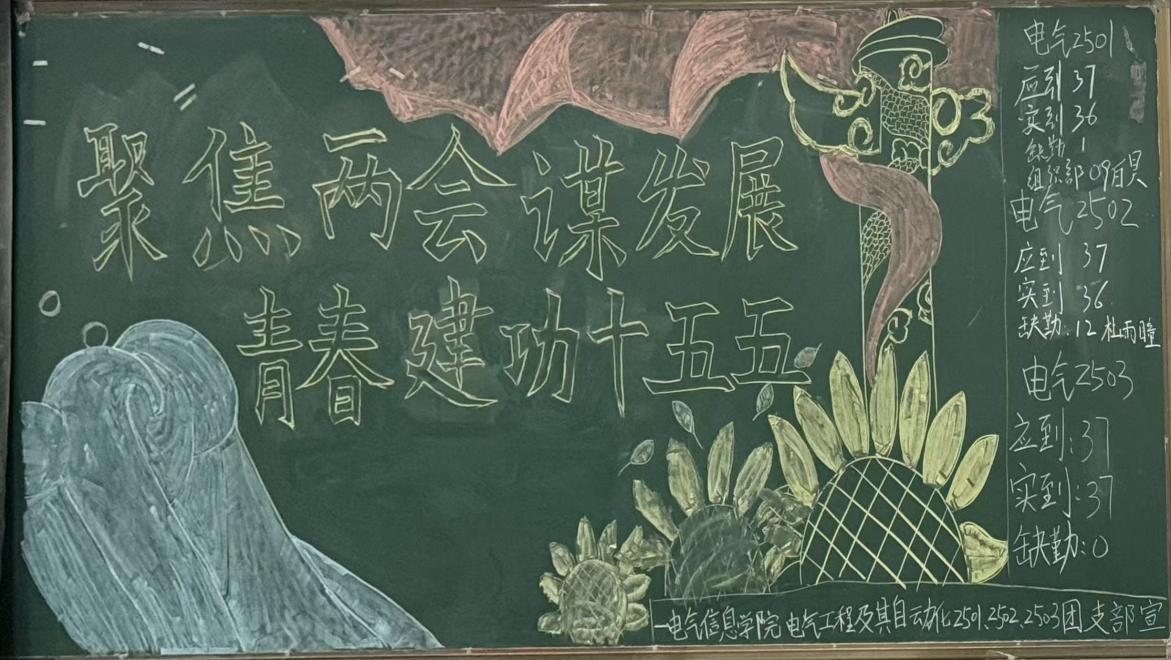 聚焦两会谋发展
青春建功十五五
电气2501
应到 37
实到 36
缺勤 1
组织部 09
电气2502
应到 37
实到 36
缺勤:12 杜雨瞳
电气2503
应到:37
实到:37
缺勤:0
—电气信息学院 电气工程及其自动化2501、2502、2503团支部宣